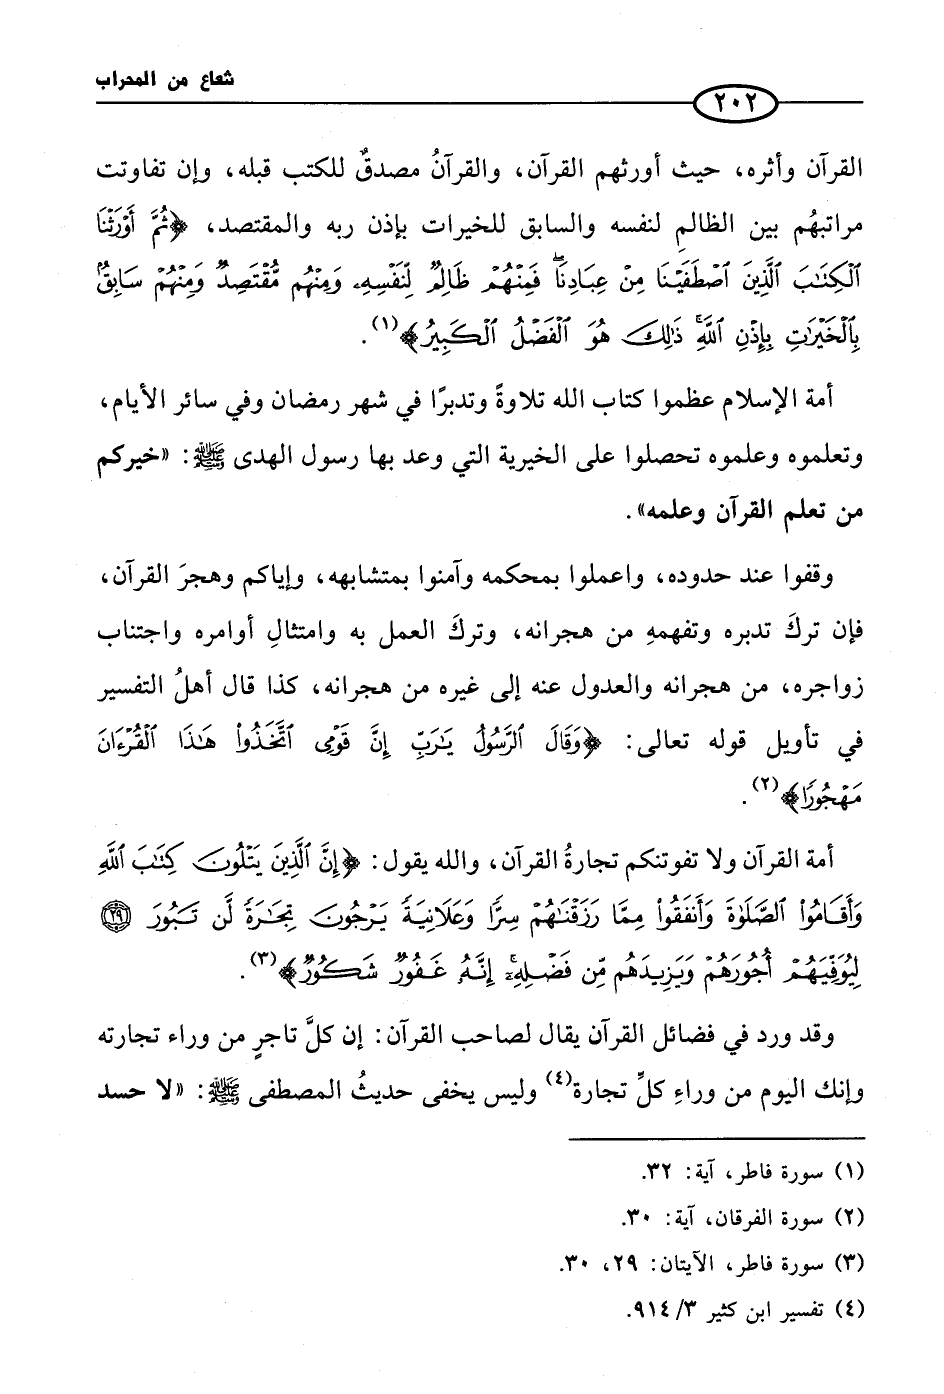 شعاع من المحراب
٢٠٢
القرآن وأثره، حيث أورثهم القرآن، والقرآنُ مصدقٌ للكتب قبله، وإن تفاوتت
مراتبهُم بين الظالمِ لنفسه والسابق للخيرات بإذن ربه والمقتصد، ﴿ثُمَّ أَوْرَثْنَا
ٱلْكِتَٰبَ ٱلَّذِينَ ٱصْطَفَيْنَا مِنْ عِبَادِنَاۖ فَمِنْهُمْ ظَالِمٌ لِّنَفْسِهِۦ وَمِنْهُم مُّقْتَصِدٌ وَمِنْهُمْ سَابِقٌۢ
بِٱلْخَيْرَٰتِ بِإِذْنِ ٱللَّهِۚ ذَٰلِكَ هُوَ ٱلْفَضْلُ ٱلْكَبِيرُ﴾(١).
أمة الإسلام عظموا كتاب الله تلاوةً وتدبرًا في شهر رمضان وفي سائر الأيام،
وتعلموه وعلموه تحصلوا على الخيرية التي وعد بها رسول الهدى ﷺ: «خيركم
من تعلم القرآن وعلمه».
وقفوا عند حدوده، واعملوا بمحكمه وآمنوا بمتشابهه، وإياكم وهجرَ القرآن،
فإن تركَ تدبره وتفهمهِ من هجرانه، وتركَ العمل به وامتثالِ أوامره واجتناب
زواجره، من هجرانه والعدول عنه إلى غيره من هجرانه، كذا قال أهلُ التفسير
في تأويل قوله تعالى: ﴿وَقَالَ ٱلرَّسُولُ يَٰرَبِّ إِنَّ قَوْمِى ٱتَّخَذُوا۟ هَٰذَا ٱلْقُرْءَانَ
مَهْجُورًا﴾(٢).
أمة القرآن ولا تفوتنكم تجارةُ القرآن، والله يقول: ﴿إِنَّ ٱلَّذِينَ يَتْلُونَ كِتَٰبَ ٱللَّهِ
وَأَقَامُوا۟ ٱلصَّلَوٰةَ وَأَنفَقُوا۟ مِمَّا رَزَقْنَٰهُمْ سِرًّا وَعَلَانِيَةً يَرْجُونَ تِجَٰرَةً لَّن تَبُورَ ٢٩
لِيُوَفِّيَهُمْ أُجُورَهُمْ وَيَزِيدَهُم مِّن فَضْلِهِۦٓۚ إِنَّهُۥ غَفُورٌ شَكُورٌ﴾(٣).
وقد ورد في فضائل القرآن يقال لصاحب القرآن: إن كلَّ تاجرٍ من وراء تجارته
وإنك اليوم من وراءِ كلِّ تجارة(٤) وليس يخفى حديثُ المصطفى ﷺ: «لا حسد
(١) سورة فاطر، آية: ٣٢.
(٢) سورة الفرقان، آية: ٣٠.
(٣) سورة فاطر، الآيتان: ٢٩، ٣٠.
(٤) تفسير ابن كثير ٣/ ٩١٤.